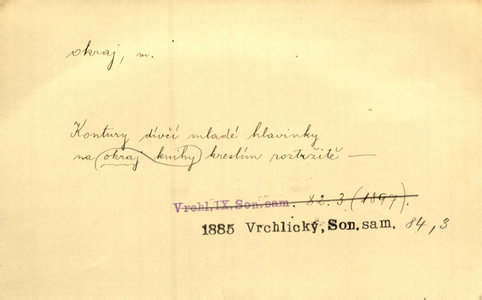 okraj, m.
Kontury dívčí mladé hlavinky
na okraj knihy kreslím roztržitě —
Vrchl. IX. Son. sam. 82. 3 (1897).
1885 Vrchlický, Son. sam. 84, 3